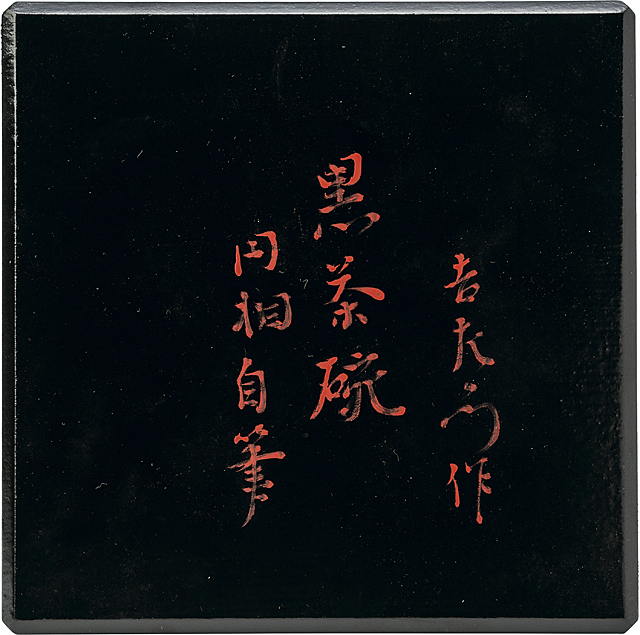 吉左衛門作
黒茶碗
円相自筆